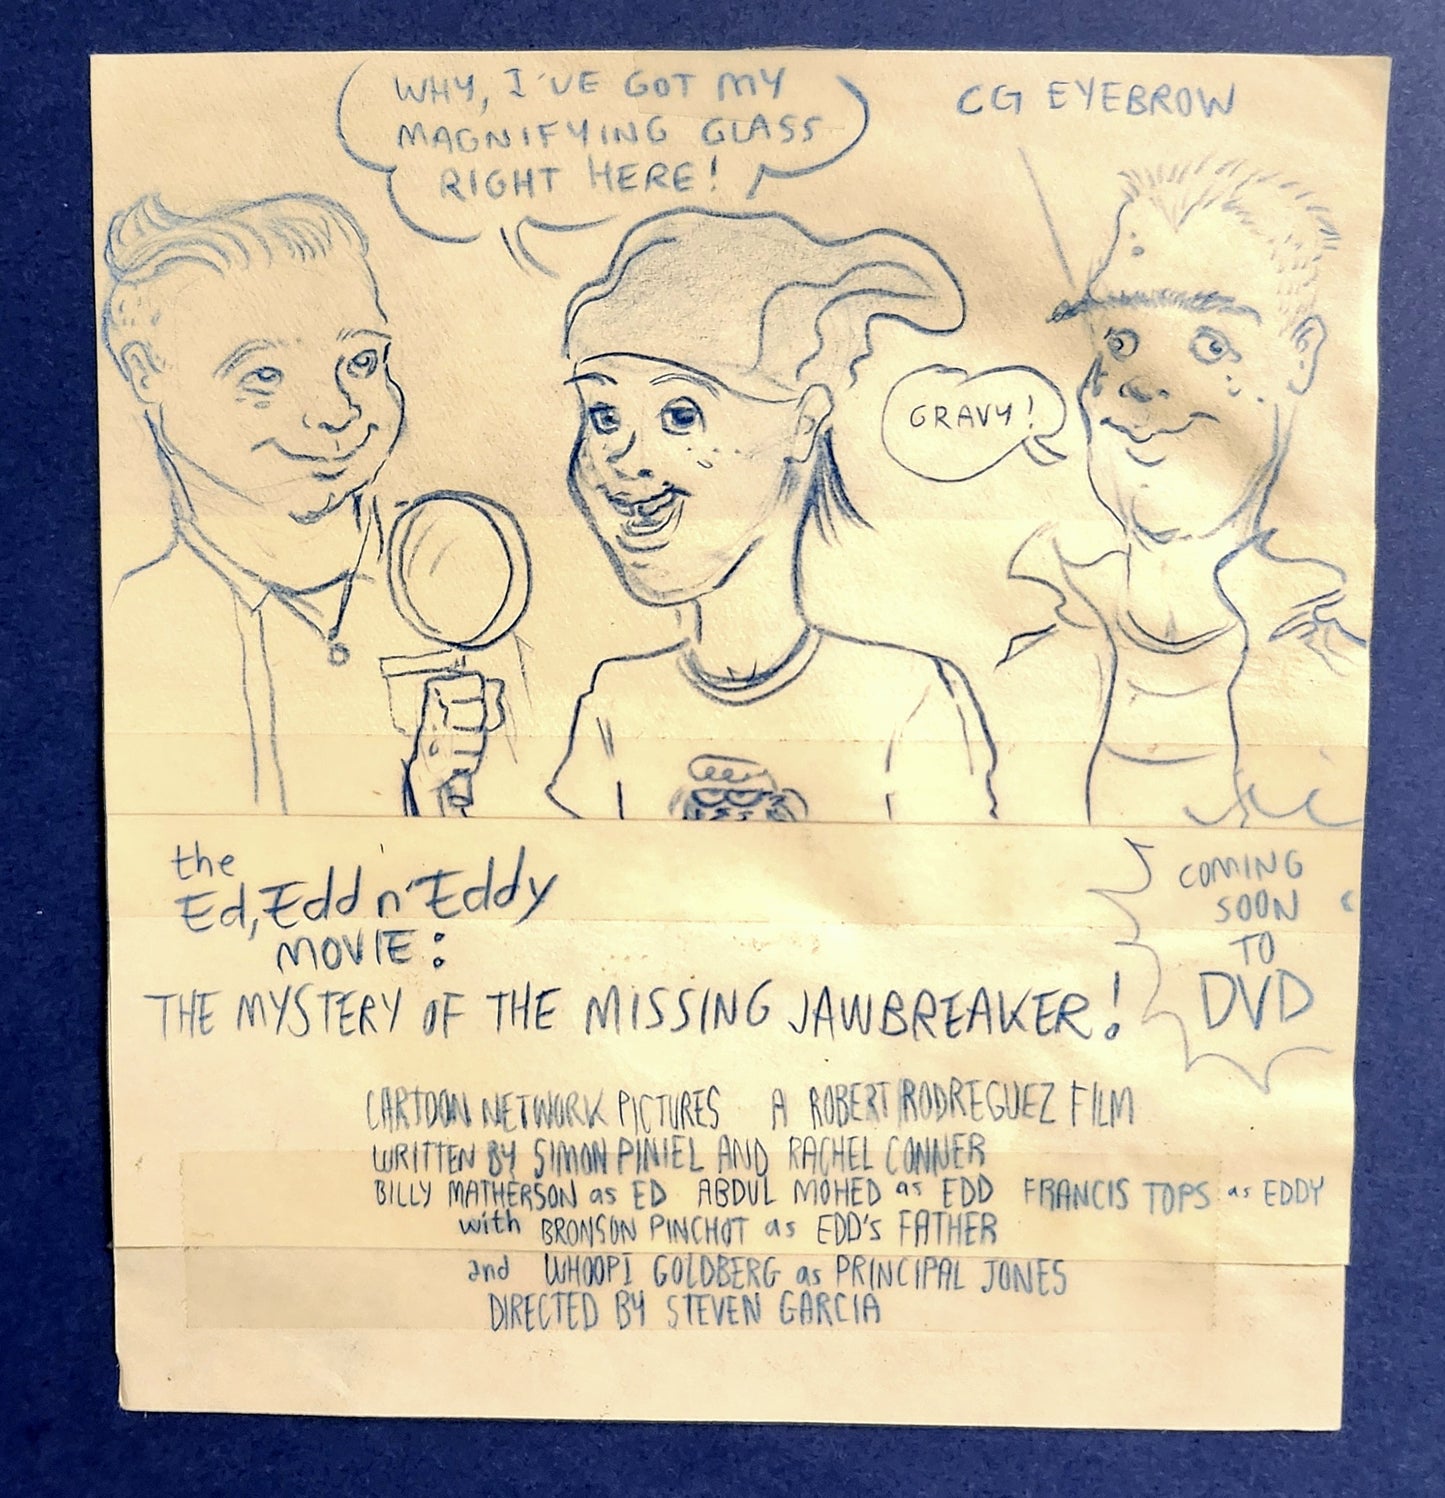 WHY, I'VE GOT MY
MAGNIFYING GLASS
RIGHT HERE!
CG EYEBROW
GRAVY!
the
Ed, Edd n' Eddy
MOVIE:
THE MYSTERY OF THE MISSING JAWBREAKER!
COMING
SOON
TO
DVD
CARTOON NETWORK PICTURES A ROBERT RODREGUEZ FILM
WRITTEN BY SIMON PINIEL AND RACHEL CONNER
BILLY MATHERSON as ED ABDUL MOHED as EDD FRANCIS TOPS as EDDY
with BRONSON PINCHOT as EDD'S FATHER
and WHOOPI GOLDBERG as PRINCIPAL JONES
DIRECTED BY STEVEN GARCIA